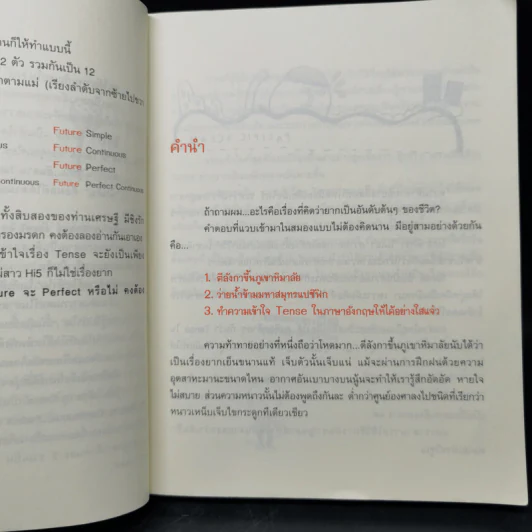 นก็ให้ทำแบบนี้
2 ตัว รวมกันเป็น 12
ตามแม่ (เรียงลำดับจากซ้ายไปขวา
Future Simple
us Future Continuous
Future Perfect
Continuous Future Perfect Continuous
ทั้งสิบสองของท่านเศรษฐี มีชิงรัก
รองมรดก คงต้องลองอ่านกันเอาเอง
ข้าใจเรื่อง Tense จะยังเป็นเพียง
สาว Hi5 ก็ไม่ใช่เรื่องยาก
ure จะ Perfect หรือไม่ คงต้อง
คำนำ
ถ้าถามผม...อะไรคือเรื่องที่คิดว่ายากเป็นอันดับต้นๆ ของชีวิต?
คำตอบที่แวบเข้ามาในสมองแบบไม่ต้องคิดนาน มีอยู่สามอย่างด้วยกัน
คือ...
1. ตีลังกาขึ้นภูเขาหิมาลัย
2. ว่ายน้ำข้ามมหาสมุทรแปซิฟิก
3. ทำความเข้าใจ Tense ในภาษาอังกฤษให้ได้อย่างใสแจ๋ว
ความท้าทายอย่างที่หนึ่งถือว่าโหดมาก...ตีลังกาขึ้นภูเขาหิมาลัยนับได้ว่า
เป็นเรื่องยากเย็นขนานแท้ เจ็บตัวนั้นเจ็บแน่ แม้จะผ่านการฝึกฝนด้วยความ
อุตสาหะมานะขนาดไหน อากาศอันเบาบางบนนู้นจะทำให้เรารู้สึกอึดอัด หายใจ
ไม่สบาย ส่วนความหนาวนั้นไม่ต้องพูดถึงกันละ ต่ำกว่าศูนย์องศาลงไปชนิดที่เรียกว่า
หนาวเหน็บเจ็บไขกระดูกทีเดียวเชียว